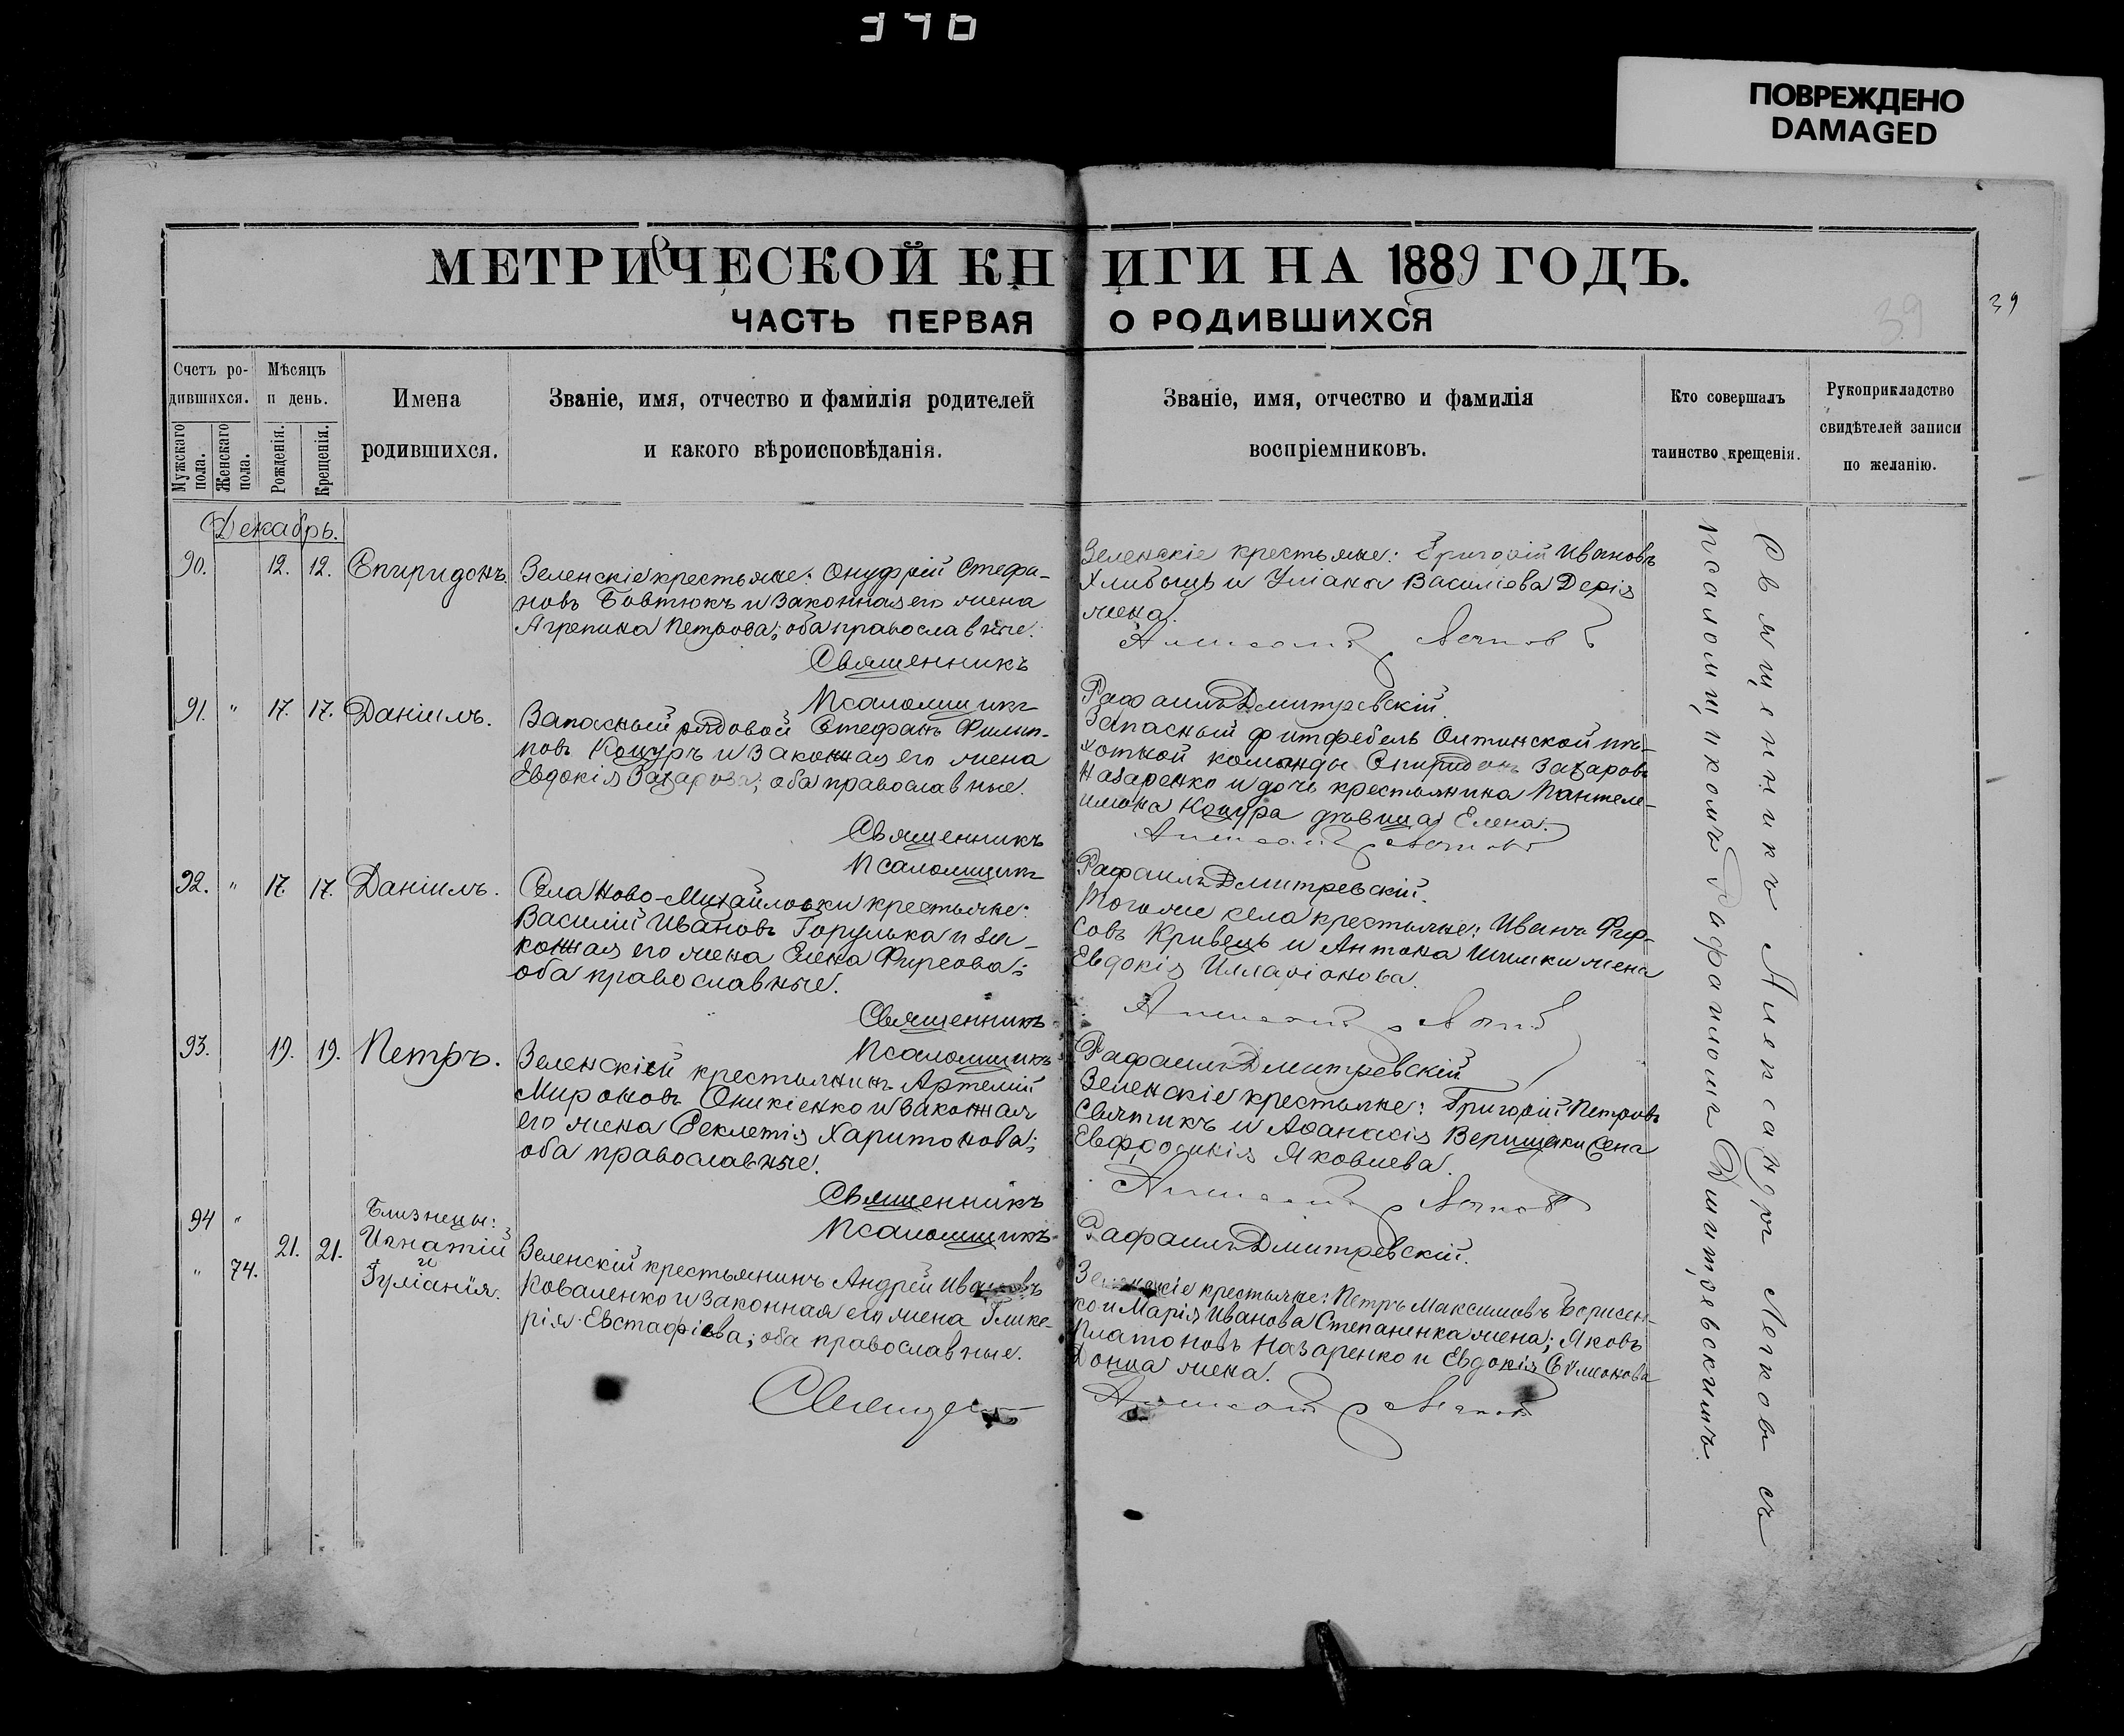 370
ПОВРЕЖДЕНО
DAMAGED
МЕТРИЧЕСКОЙ КНИГИ НА 1889 ГОДЪ.
ЧАСТЬ ПЕРВАЯ О РОДИВШИХСЯ
39
39
Счетъ ро-
дившихся.
Мужскаго пола.
Женскаго пола.
Мѣсяцъ
и день.
Рожденія.
Крещенія.
Имена
родившихся.
Званіе, имя, отчество и фамилія родителей
и какого вѣроисповѣданія.
Званіе, имя, отчество и фамилія
воспріемниковъ.
Кто совершалъ
таинство крещенія.
Рукоприкладство
свидѣтелей записи
по желанію.
Декабрь.
90. 12. 12. Спиридонъ.
Зеленскіе крестьяне: Онуфрій Стефа-
новъ Бовтюкъ и законная его жена
Агрепина Петрова; оба православные.
Зеленскіе крестьяне: Григорій Ивановъ
и Уліана Василіева Дерія
жена.
Священникъ
Псаломщикъ Рафаилъ Дмитревскій.
91. " 17. 17. Даніилъ.
Запасный рядовой Стефанъ Филип-
повъ Коцуръ и законная его жена
Евдокія Захарова; оба православные.
Запасный фитфебель Олтинской пѣ-
хотной команды Спиридонъ Захаровъ
Назаренко и дочь крестьянина Пантеле-
имона Коцура дѣвица Елена.
Священникъ
Псаломщикъ Рафаилъ Дмитревскій.
92. " 17. 17. Даніилъ.
Села Ново-Михайловки крестьяне:
Василій Ивановъ Горулька и за-
конная его жена Елена Фирсова;
оба православные.
Того же села крестьяне: Иванъ Фир-
совъ Кривецъ и Антона Шишки жена
Евдокія Илларіонова.
Священникъ
Псаломщикъ Рафаилъ Дмитревскій
93. 19. 19. Петръ.
Зеленскій крестьянинъ Артемій
Мироновъ Оникіенко и законная
его жена Феклетія Харитонова;
оба православные.
Зеленскіе крестьяне: Григорій Петровъ
Святикъ и Аѳанасія Верищаки жена
Евфросинія Яковлева.
Священникъ
Псаломщикъ Рафаилъ Дмитревскій.
94 " 21. 21.
" 74.
Близнецы:
Игнатій
и
Гуліанія.
Зеленскій крестьянинъ Андрей Ивановъ
Коваленко и законная его жена Глике-
рія Евстафіева; оба православные.
Зеленскіе крестьяне: Петръ Максимовъ Борисен-
ко и Марія Иванова Степаненка жена; Яковъ
Платоновъ Назаренко и Евдокія Симонова
Донца жена.
Священ
Священникъ Александръ Легковъ съ
псаломщикомъ Рафаиломъ Дмитревскимъ.